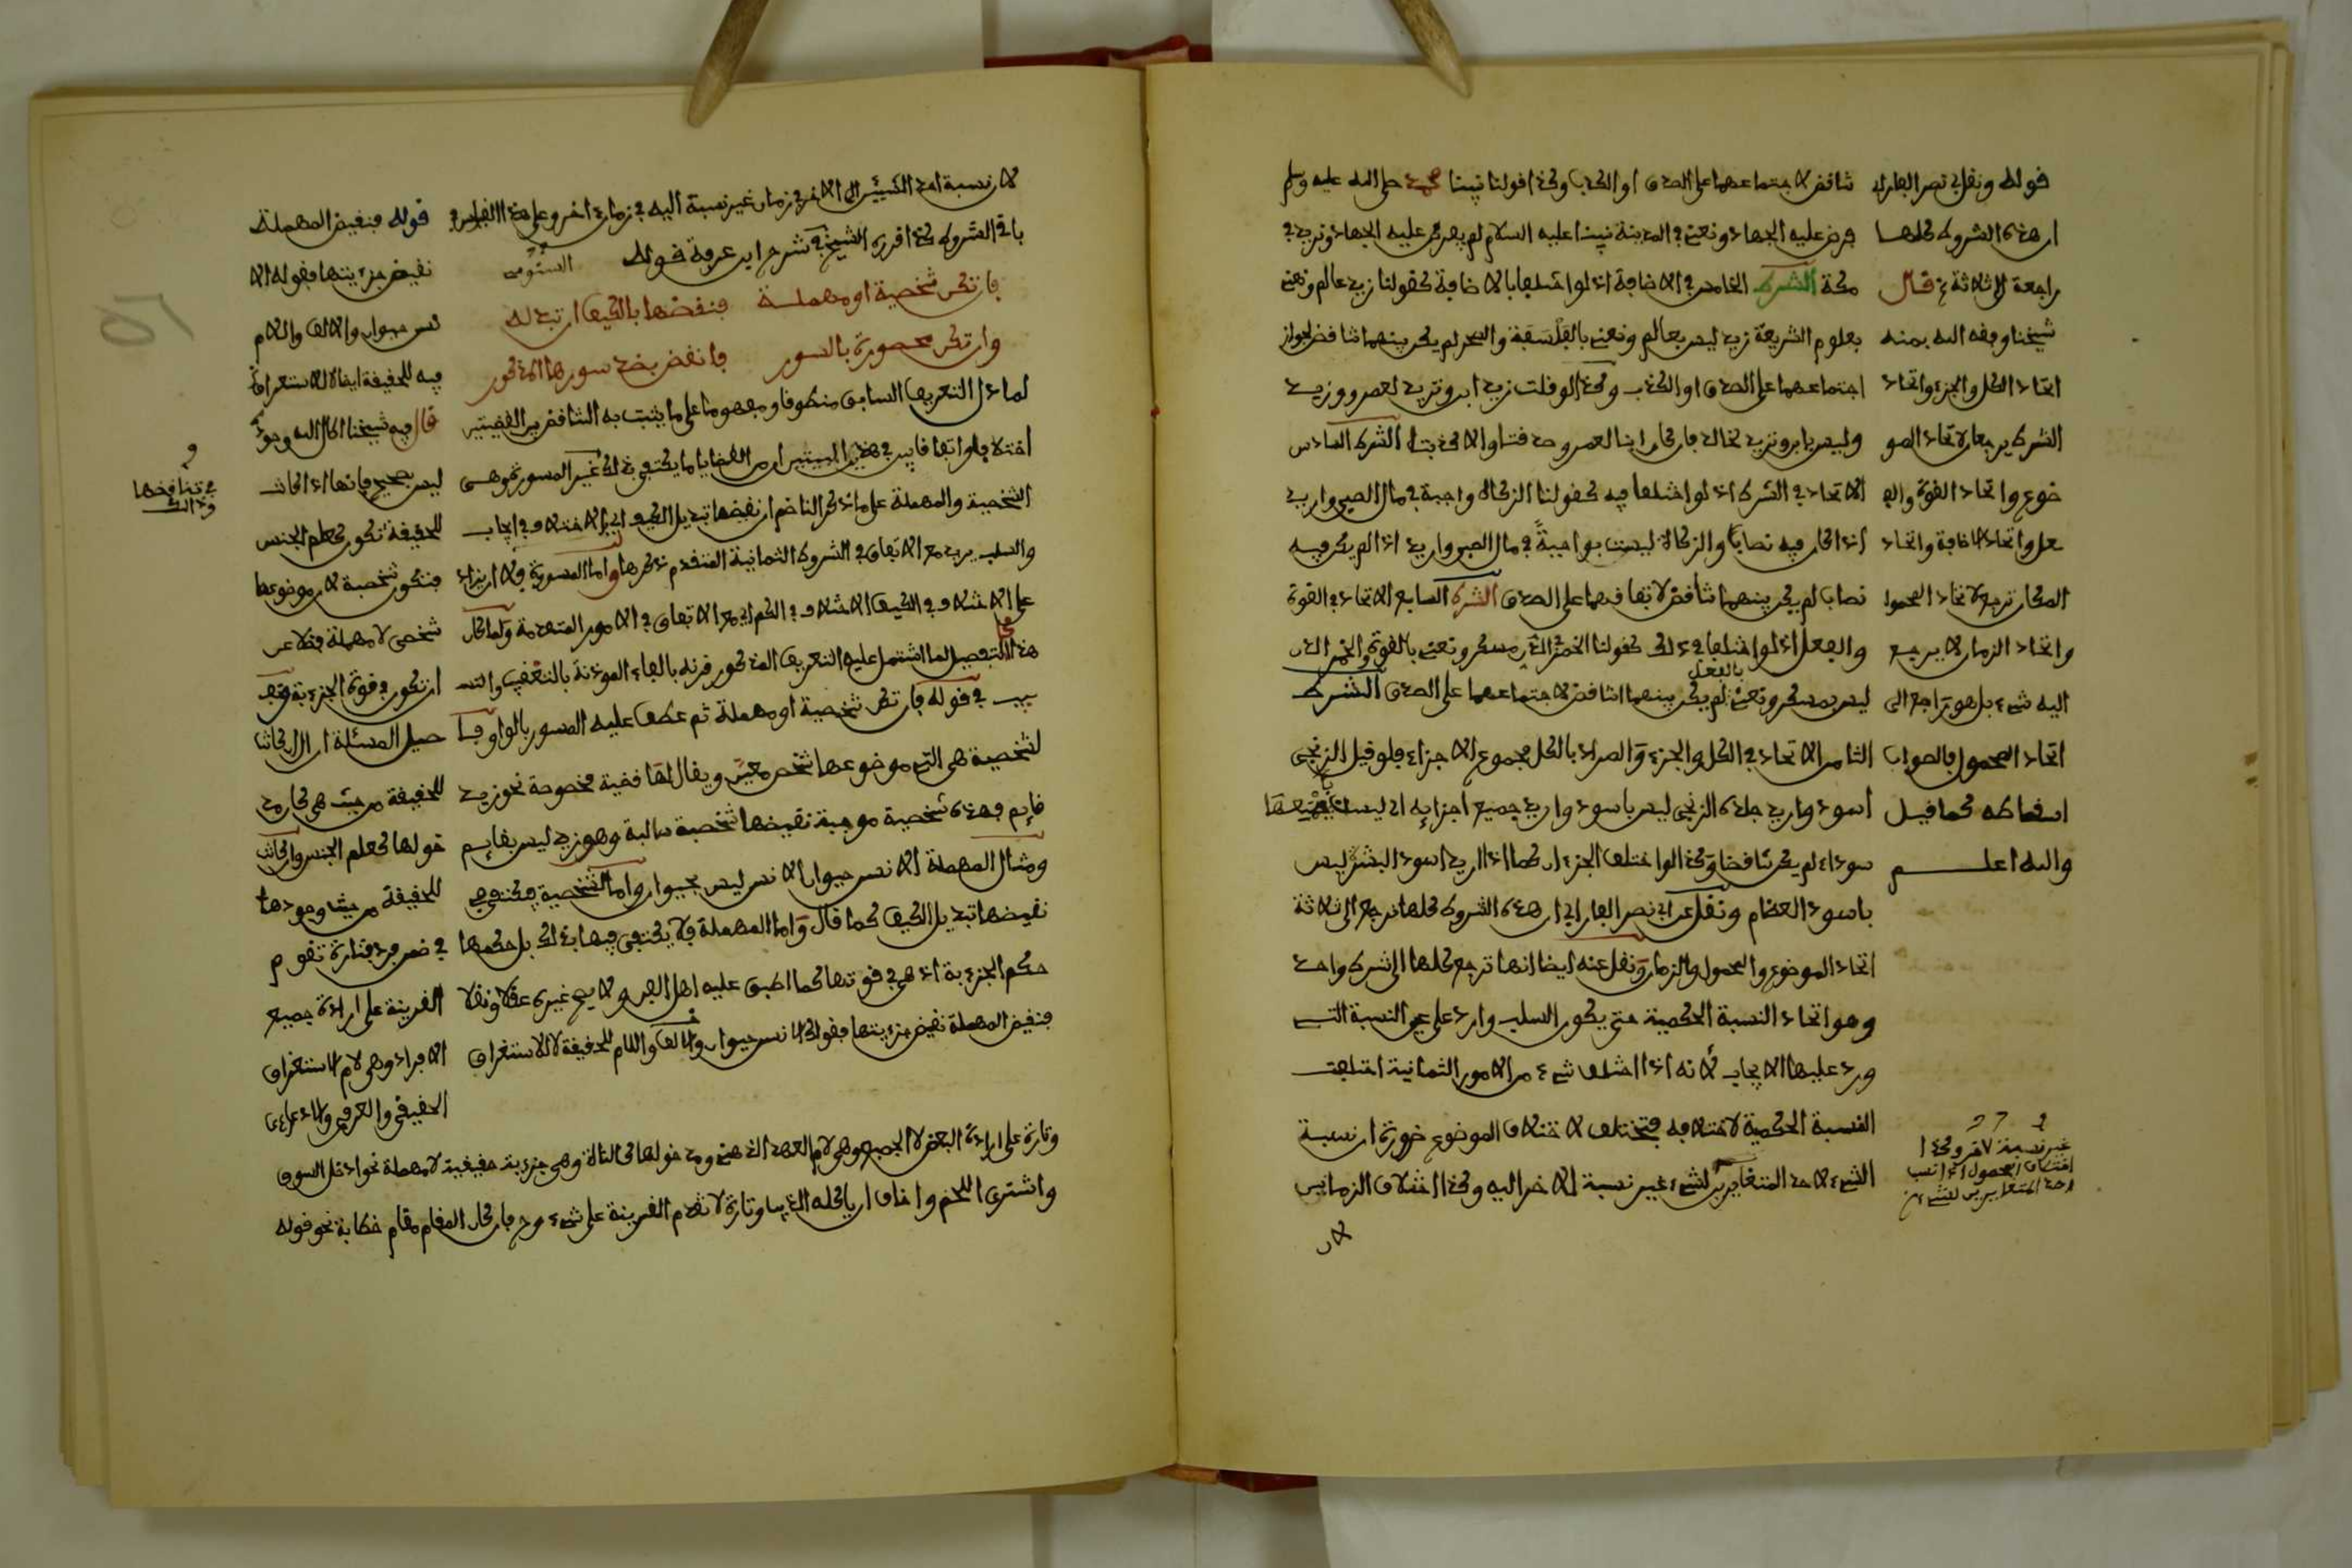 تناقض لاجتماعهما على الصدق او الكذب وكذا قولنا نبينا محمد صلى الله عليه وسلم
فرض عليه الجهاد ونعني في المدينة نبينا عليه السلام لم يفرض عليه الجهاد ونريد في
مكة الشرط الخامس في الاضافة اذ لو اختلفا بالاضافة كقولنا زيد عالم ونعني
بعلوم الشريعة زيد ليس بعالم ونعني بالفلسفة والسحر لم يكن بينهما تناقض لجواز
اجتماعهما على الصدق او الكذب وكذا لو قلت زيد ابن ونريد لعمرو وزيد
وليس بابن ونريد لخالد فان كان ابنا لعمرو صدقتا والا كذبتا الشرط السادس
الاتحاد في الشرط اذ لو اختلفا فيه كقولنا الزكاة واجبة في مال الصبي واريد
اذا كان فيه نصابا والزكاة ليست بواجبة في مال الصبي واريد اذا لم يكن فيه
نصاب لم يكن بينهما تناقض لاتفاقهما على الصدق الشرط السابع الاتحاد في القوة
والفعل اذ لو اختلفا في ذلك كقولنا الخمر في الدن مسكر ونعني بالقوة والخمر في الدن
ليس بمسكر ونعني بالفعل لم يكن بينهما تناقض لاجتماعهما على الصدق الشرط
الثامن الاتحاد في الكل والجزء والمراد بالكل مجموع الاجزاء فلو قيل الزنجي
اسود واريد جلده الزنجي ليس باسود واريد جميع اجزايه اي ليست جميعها
سوداء لم يكن تناقضا وكذا لو اختلف الجزءان كما اذا اريد اسود البشر ليس
باسود العظام ونقل عن ابي نصر الفارابي ان هذه الشروط كلها ترجع الى ثلاثة
اتحاد الموضوع والمحمول والزمان ونقل عنه ايضا انها ترجع كلها الى شرط واحد
وهو اتحاد النسبة الحكمية حتى يكون السلب وارد على عين النسبة التي
ورد عليها الايجاب لانه اذا اختلف شيء من الامور الثمانية اختلفت
النسبة الحكمية لاختلافه فتختلف لاختلاف الموضوع ضرورة ان نسبة
الشيء لاحد المتغايرين لشيء غير نسبة الاخر اليه وكذا اختلاف الزمانين
لان
قوله ونقل ابي نصر الفارابي
ان هذه الشروط كلها
راجعة الى ثلاثة قال
شيخنا وفقه الله بمنه
اتحاد الكل والجزء واتحاد
الشرط يرجعان لاتحاد المو
ضوع واتحاد القوة والف
عل واتحاد الاضافة واتحاد
المكان ترجع لاتحاد المحمول
واتحاد الزمان لا يرجع
اليه شيء بل هو راجع الى
اتحاد المحمول فالصواب
اسقاطه كما قيل
والله اعلم
غير نسبة لاخر وكذا
اختلاف المحمول اذ انتسب
احد المتغايرين للشيء
لان نسبة احد الشيئين الى الاخر في زمان غير نسبة اليه في زمان اخر وعلى هذا القياس في
باقي الشروط كذا قرره الشيخ السنوسي في شرح ابن عرفة قوله
فان تكن شخصية او مهملة فنقضها بالكيف ان تبدله
وان تكن محصورة بالسور فانقض بضد سورها المذكور
لما دل التعريف السابق منطوقا ومفهوما على ما يثبت به التناقض بين القضيتين
اختلافا واتفاقا بين في هذين البيتين ان من القضايا ما يكتفى في ذلك غير المسور وهي
الشخصية والمهملة على ما ذكر الناظم ان نقيضها تبديل الكيف اي الاختلاف في ايجاب
والسلب يريد مع الاتفاق في الشروط الثمانية المتقدم ذكرها واما المسورة فلا ان يزاد
على الاختلاف في الكيف الاختلاف في الكم اي مع الاتفاق في الامور المتقدمة ولما كان
هذا التفصيل لما اشتمل عليه التعريف المذكور قرنه بالفاء المؤذنة بالتعقيب والتس
بيب في قوله فان تكن شخصية او مهملة ثم عطف عليه المسور بالواو فا
لشخصية هي التي موضوعها شخص معين ويقال لها قضية مخصوصة نحو زيد
قايم فهذه شخصية موجبة نقيضها شخصية سالبة وهو زيد ليس بقايم
ومثال المهملة الانسن حيوان الانسن ليس بحيوان واما الشخصية فيكتفى في
نقيضها تبديل الكيف كما قال واما المهملة فلا يكتفى فيها بذلك بل حكمها
حكم الجزءية اذ هي في قوتها كما اطبق عليه اهل الفن ولا يصح غيره عقلا ونقلا
فنقيض المهملة نقيض جزءيتها فقولك الانسن حيوان والالف واللام للحقيقة لا للاستغراق
قوله فنقيض المهملة
نقيض جزءيتها فقوله الا
نسن حيوان والالف واللام
فيه للحقيقة ايضا لا للاستغراق
قال فيه شيخنا اكمال الله وجوده
ليس بصحيح فانها اذا كانت
للحقيقة تكون كعلم الجنس
فتكون شخصية لان موضوعها
شخصي لا مهملة فضلا عن
ان تكون في قوة الجزءية وتحـ
صيل المسئلة ان ال ان كانت
للحقيقة من حيث هي كان مد
خولها كعلم الجنس وان كانت
للحقيقة من حيث وجودها
في ضمن فرد فتارة تقوم
القرينة على ارادة جميع
الافراد وهي لام الاستغراق
الحقيقي والعرفي والادعاءي
وتارة على ارادة البعض لا الجميع وهي لام العهد الذهني ومدخولها كالنكرة وهي جزءية حقيقية لا مهملة نحو ادخل السوق
واشتري اللحم واخاف ان ياكله الذيب وتارة لا تقدم القرينة على شيء وح فان كان المقام مقام خطابة نحو قوله
في تناقضها
وذالك